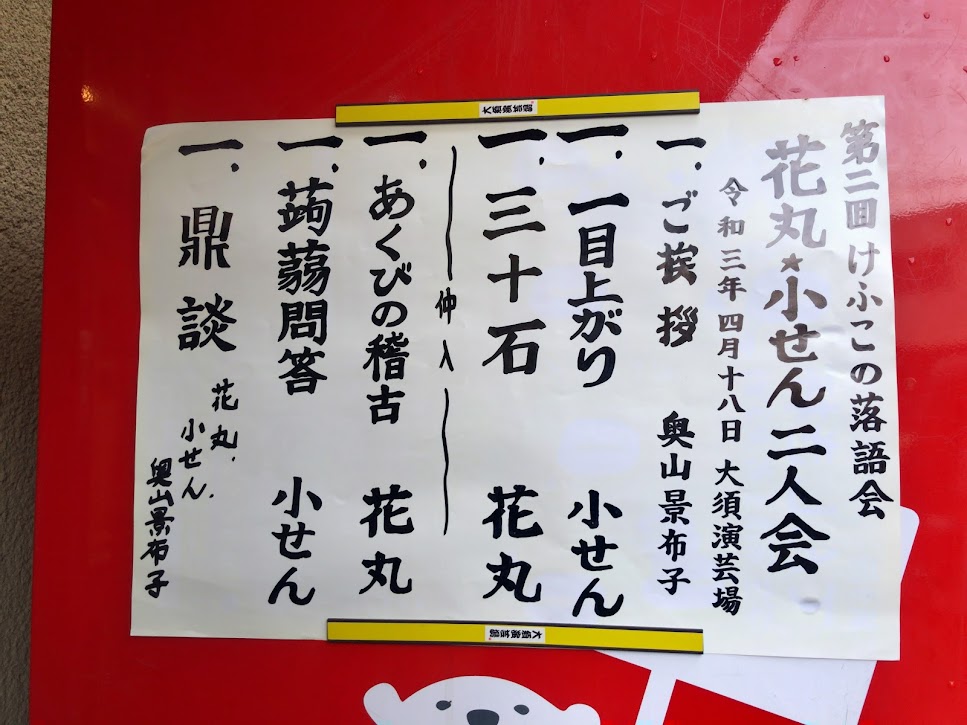 第二回けふこの落語会
花丸★小せん二人会
令和三年四月十八日 大須演芸場
一、ご挨拶 奥山景布子
一、一目上がり 小せん
一、三十石 花丸
仲入
一、あくびの稽古 花丸
一、蒟蒻問答 小せん
一、鼎談 花丸、
小せん、
奥山景布子
大須演芸場
大須演芸場